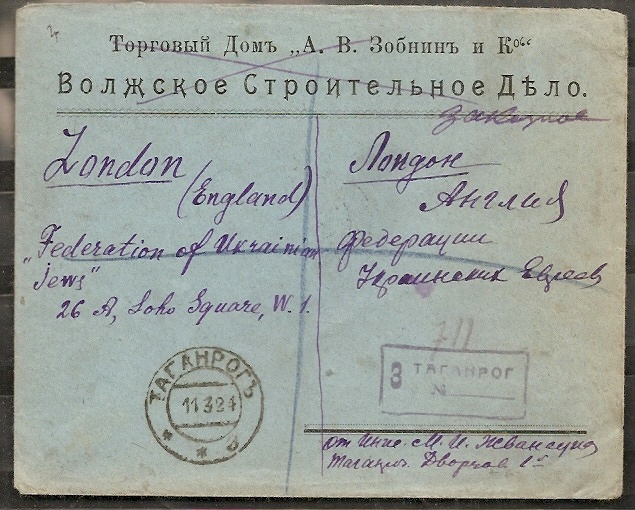 Торговый Домъ „А. В. Зобнинъ и Ко“
Волжское Строительное Дѣло.
Заказное
London
(England)
„Federation of Ukrainian
Jews"
26 A, Soho Square, W. 1.
Лондон
Англия
Федерации
Украинских Евреев
711
З ТАГАНРОГ
N
ТАГАНРОГЪ
11 3 24
от Инж. М. И.
Дворцов 1